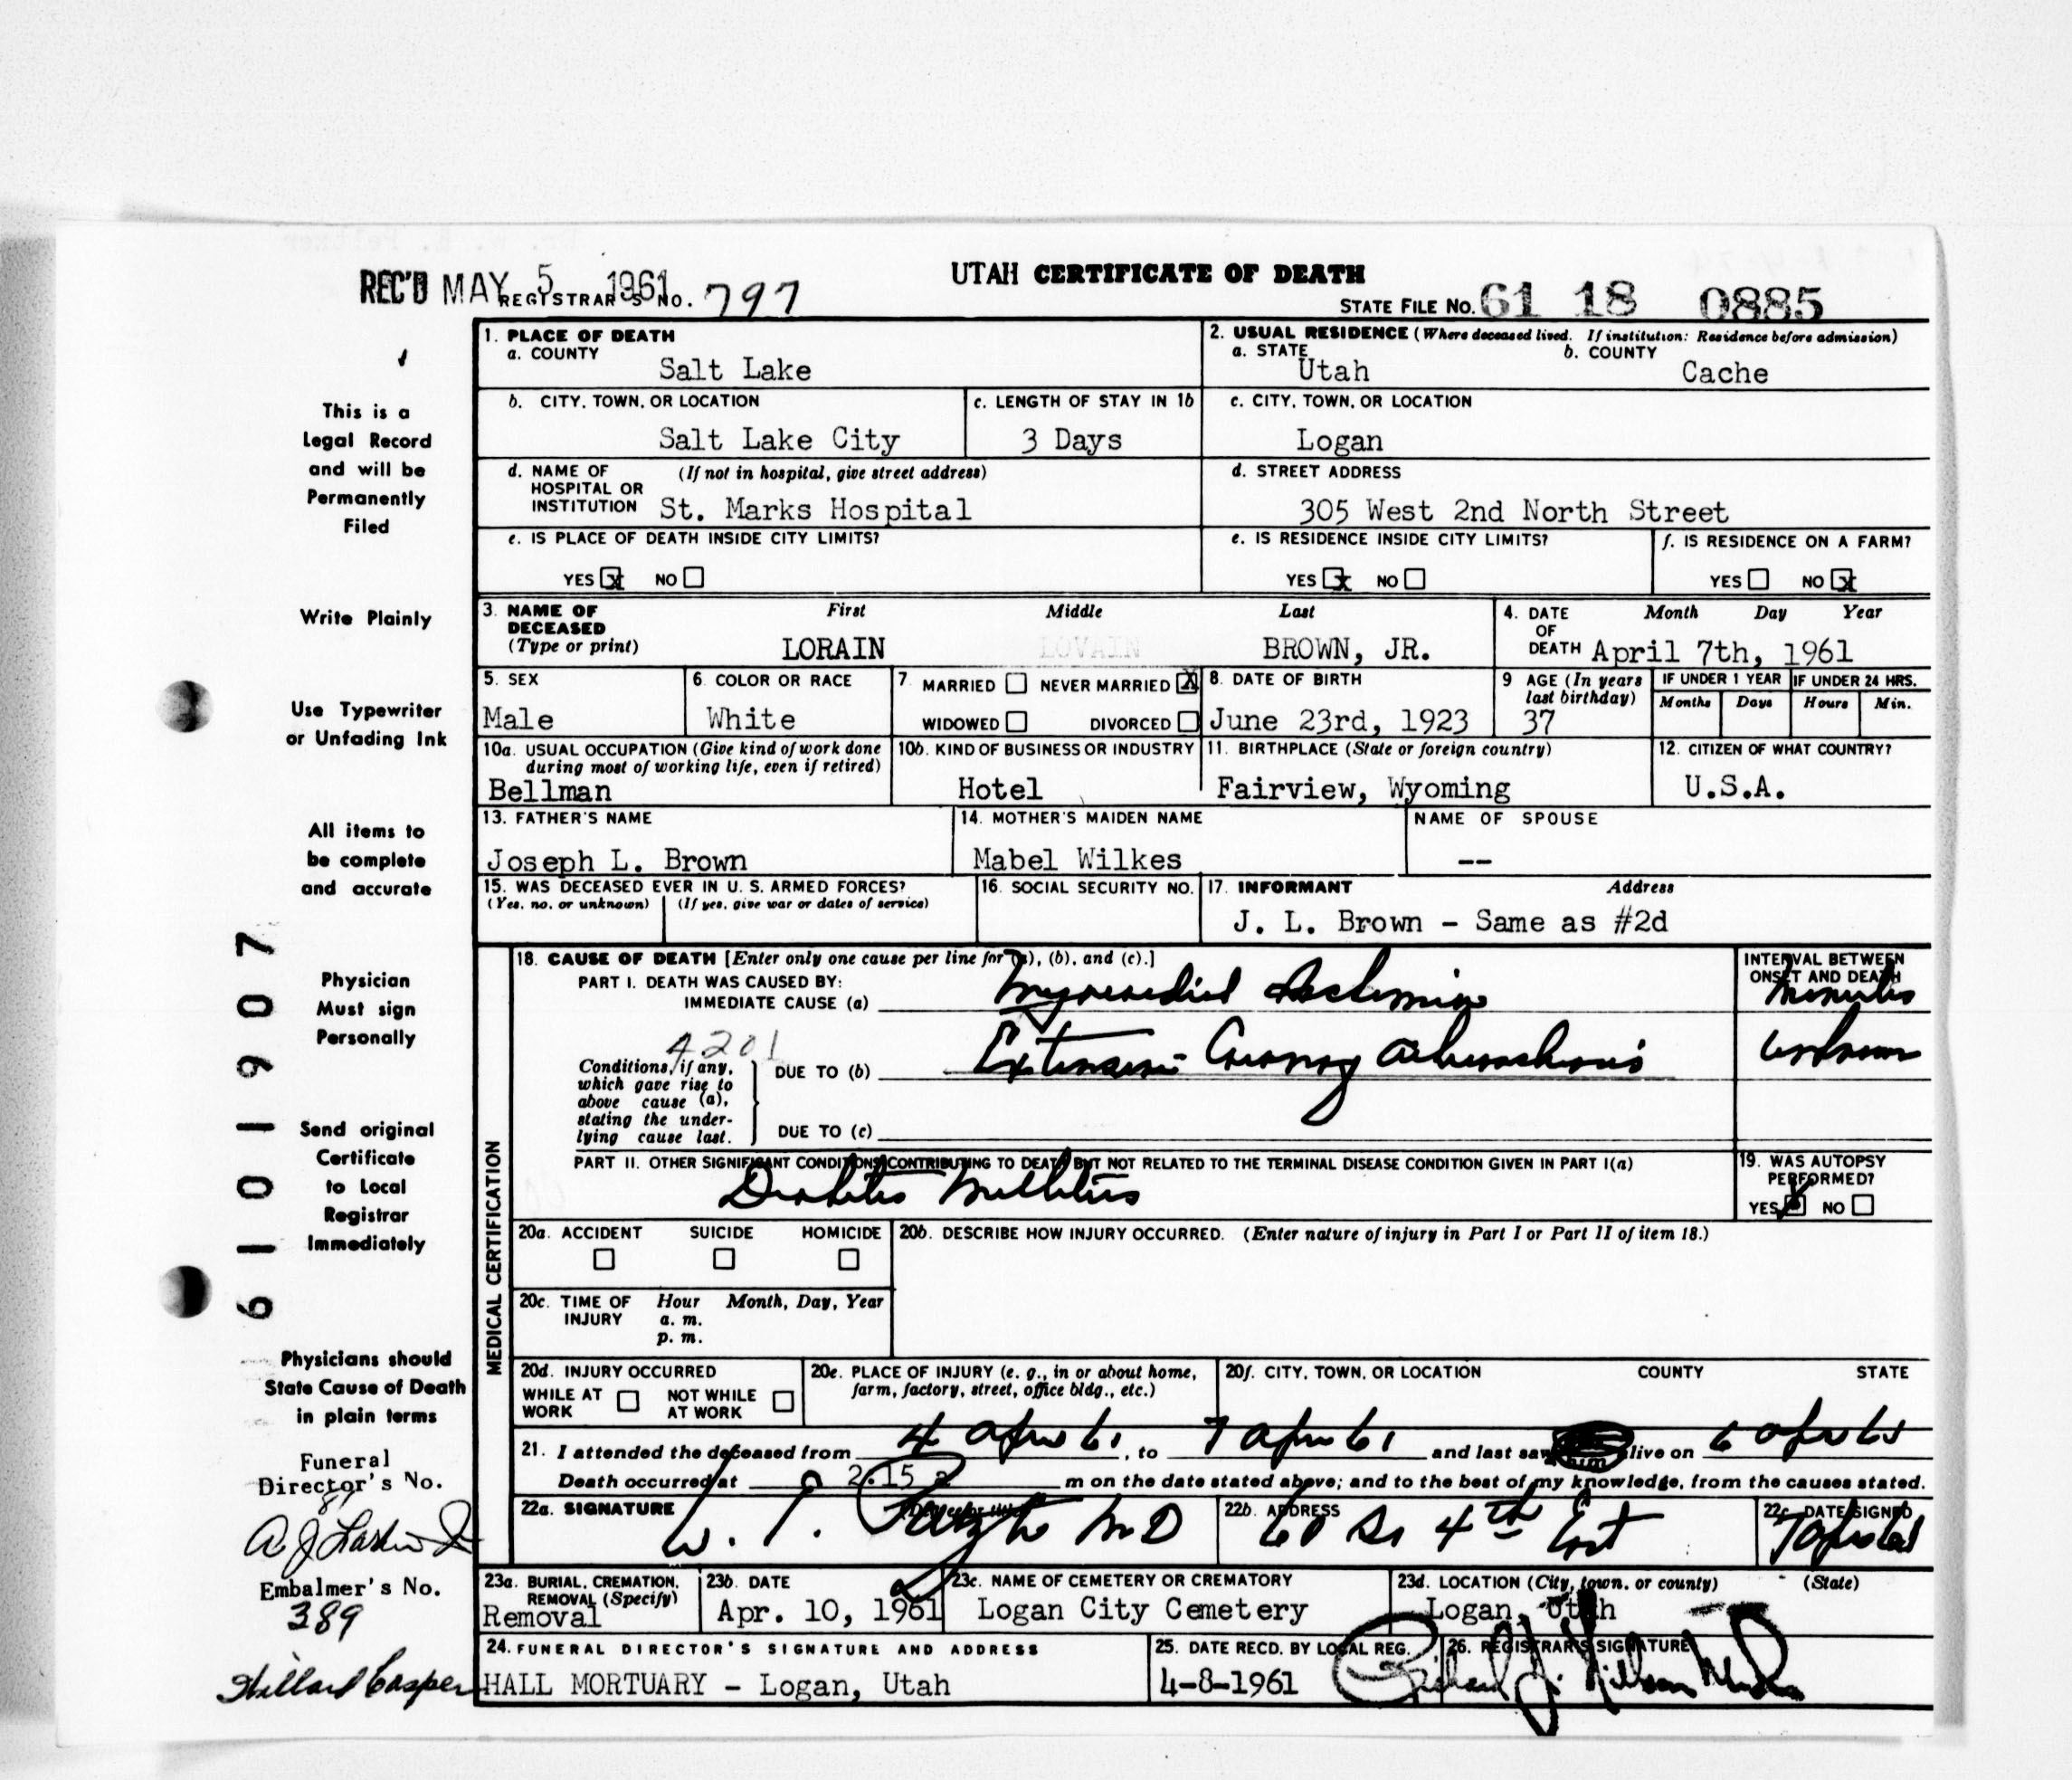 UTAH CERTIFICATE OF DEATH
REC'D MAY 5 1961 REGISTRAR'S NO. 797
STATE FILE NO. 61 18 0885
1. PLACE OF DEATH
a. COUNTY
Salt Lake
2. USUAL RESIDENCE (Where deceased lived. If institution: Residence before admission)
a. STATE b. COUNTY
Utah Cache
b. CITY, TOWN, OR LOCATION
Salt Lake City
c. LENGTH OF STAY IN 1b
3 Days
c. CITY, TOWN, OR LOCATION
Logan
d. NAME OF HOSPITAL OR INSTITUTION (If not in hospital, give street address)
St. Marks Hospital
d. STREET ADDRESS
305 West 2nd North Street
e. IS PLACE OF DEATH INSIDE CITY LIMITS?
YES x NO
e. IS RESIDENCE INSIDE CITY LIMITS?
YES x NO
f. IS RESIDENCE ON A FARM?
YES NO x
3. NAME OF DECEASED (Type or print)
First Middle Last
LORAIN LOVAIN BROWN, JR.
4. DATE OF DEATH Month Day Year
April 7th, 1961
5. SEX
Male
6. COLOR OR RACE
White
7. MARRIED NEVER MARRIED X
WIDOWED DIVORCED
8. DATE OF BIRTH
June 23rd, 1923
9 AGE (In years last birthday)
37
IF UNDER 1 YEAR IF UNDER 24 HRS.
Months Days Hours Min.
10a. USUAL OCCUPATION (Give kind of work done during most of working life, even if retired)
Bellman
10b. KIND OF BUSINESS OR INDUSTRY
Hotel
11. BIRTHPLACE (State or foreign country)
Fairview, Wyoming
12. CITIZEN OF WHAT COUNTRY?
U.S.A.
13. FATHER'S NAME
Joseph L. Brown
14. MOTHER'S MAIDEN NAME
Mabel Wilkes
NAME OF SPOUSE
--
15. WAS DECEASED EVER IN U. S. ARMED FORCES?
(Yes, no, or unknown) (If yes, give war or dates of service)
16. SOCIAL SECURITY NO.
17. INFORMANT Address
J. L. Brown - Same as #2d
MEDICAL CERTIFICATION
18. CAUSE OF DEATH [Enter only one cause per line for (a), (b), and (c).]
PART I. DEATH WAS CAUSED BY:
IMMEDIATE CAUSE (a) Myocardial Ischemia
INTERVAL BETWEEN ONSET AND DEATH
Minutes
4201
Conditions, if any, which gave rise to above cause (a), stating the underlying cause last.
DUE TO (b) Extensive Coronary Atherosclerosis
Unknown
DUE TO (c)
PART II. OTHER SIGNIFICANT CONDITIONS CONTRIBUTING TO DEATH BUT NOT RELATED TO THE TERMINAL DISEASE CONDITION GIVEN IN PART I(a)
Diabetes Mellitus
19. WAS AUTOPSY PERFORMED?
YES X NO
20a. ACCIDENT SUICIDE HOMICIDE
20b. DESCRIBE HOW INJURY OCCURRED. (Enter nature of injury in Part I or Part II of item 18.)
20c. TIME OF INJURY Hour Month, Day, Year
a. m.
p. m.
20d. INJURY OCCURRED
WHILE AT WORK NOT WHILE AT WORK
20e. PLACE OF INJURY (e. g., in or about home, farm, factory, street, office bldg., etc.)
20f. CITY, TOWN, OR LOCATION COUNTY STATE
21. I attended the deceased from 4 Apr 61, to 7 Apr 61 and last saw him alive on 6 Apr 61
Death occurred at 2:15 a m on the date stated above; and to the best of my knowledge, from the causes stated.
22a. SIGNATURE
W. T. MD
22b. ADDRESS
60 So 4th East
22c. DATE SIGNED
7 Apr 61
23a. BURIAL, CREMATION, REMOVAL (Specify)
Removal
23b. DATE
Apr. 10, 1961
23c. NAME OF CEMETERY OR CREMATORY
Logan City Cemetery
23d. LOCATION (City, town, or county) (State)
Logan, Utah
24. FUNERAL DIRECTOR'S SIGNATURE AND ADDRESS
HALL MORTUARY - Logan, Utah
25. DATE RECD. BY LOCAL REG.
4-8-1961
26. REGISTRAR'S SIGNATURE
This is a
Legal Record
and will be
Permanently
Filed
Write Plainly
Use Typewriter
or Unfading Ink
All items to
be complete
and accurate
Physician
Must sign
Personally
Send original
Certificate
to Local
Registrar
Immediately
Physicians should
State Cause of Death
in plain terms
Funeral
Director's No.
81
Embalmer's No.
389
Hillard Casper
6101907